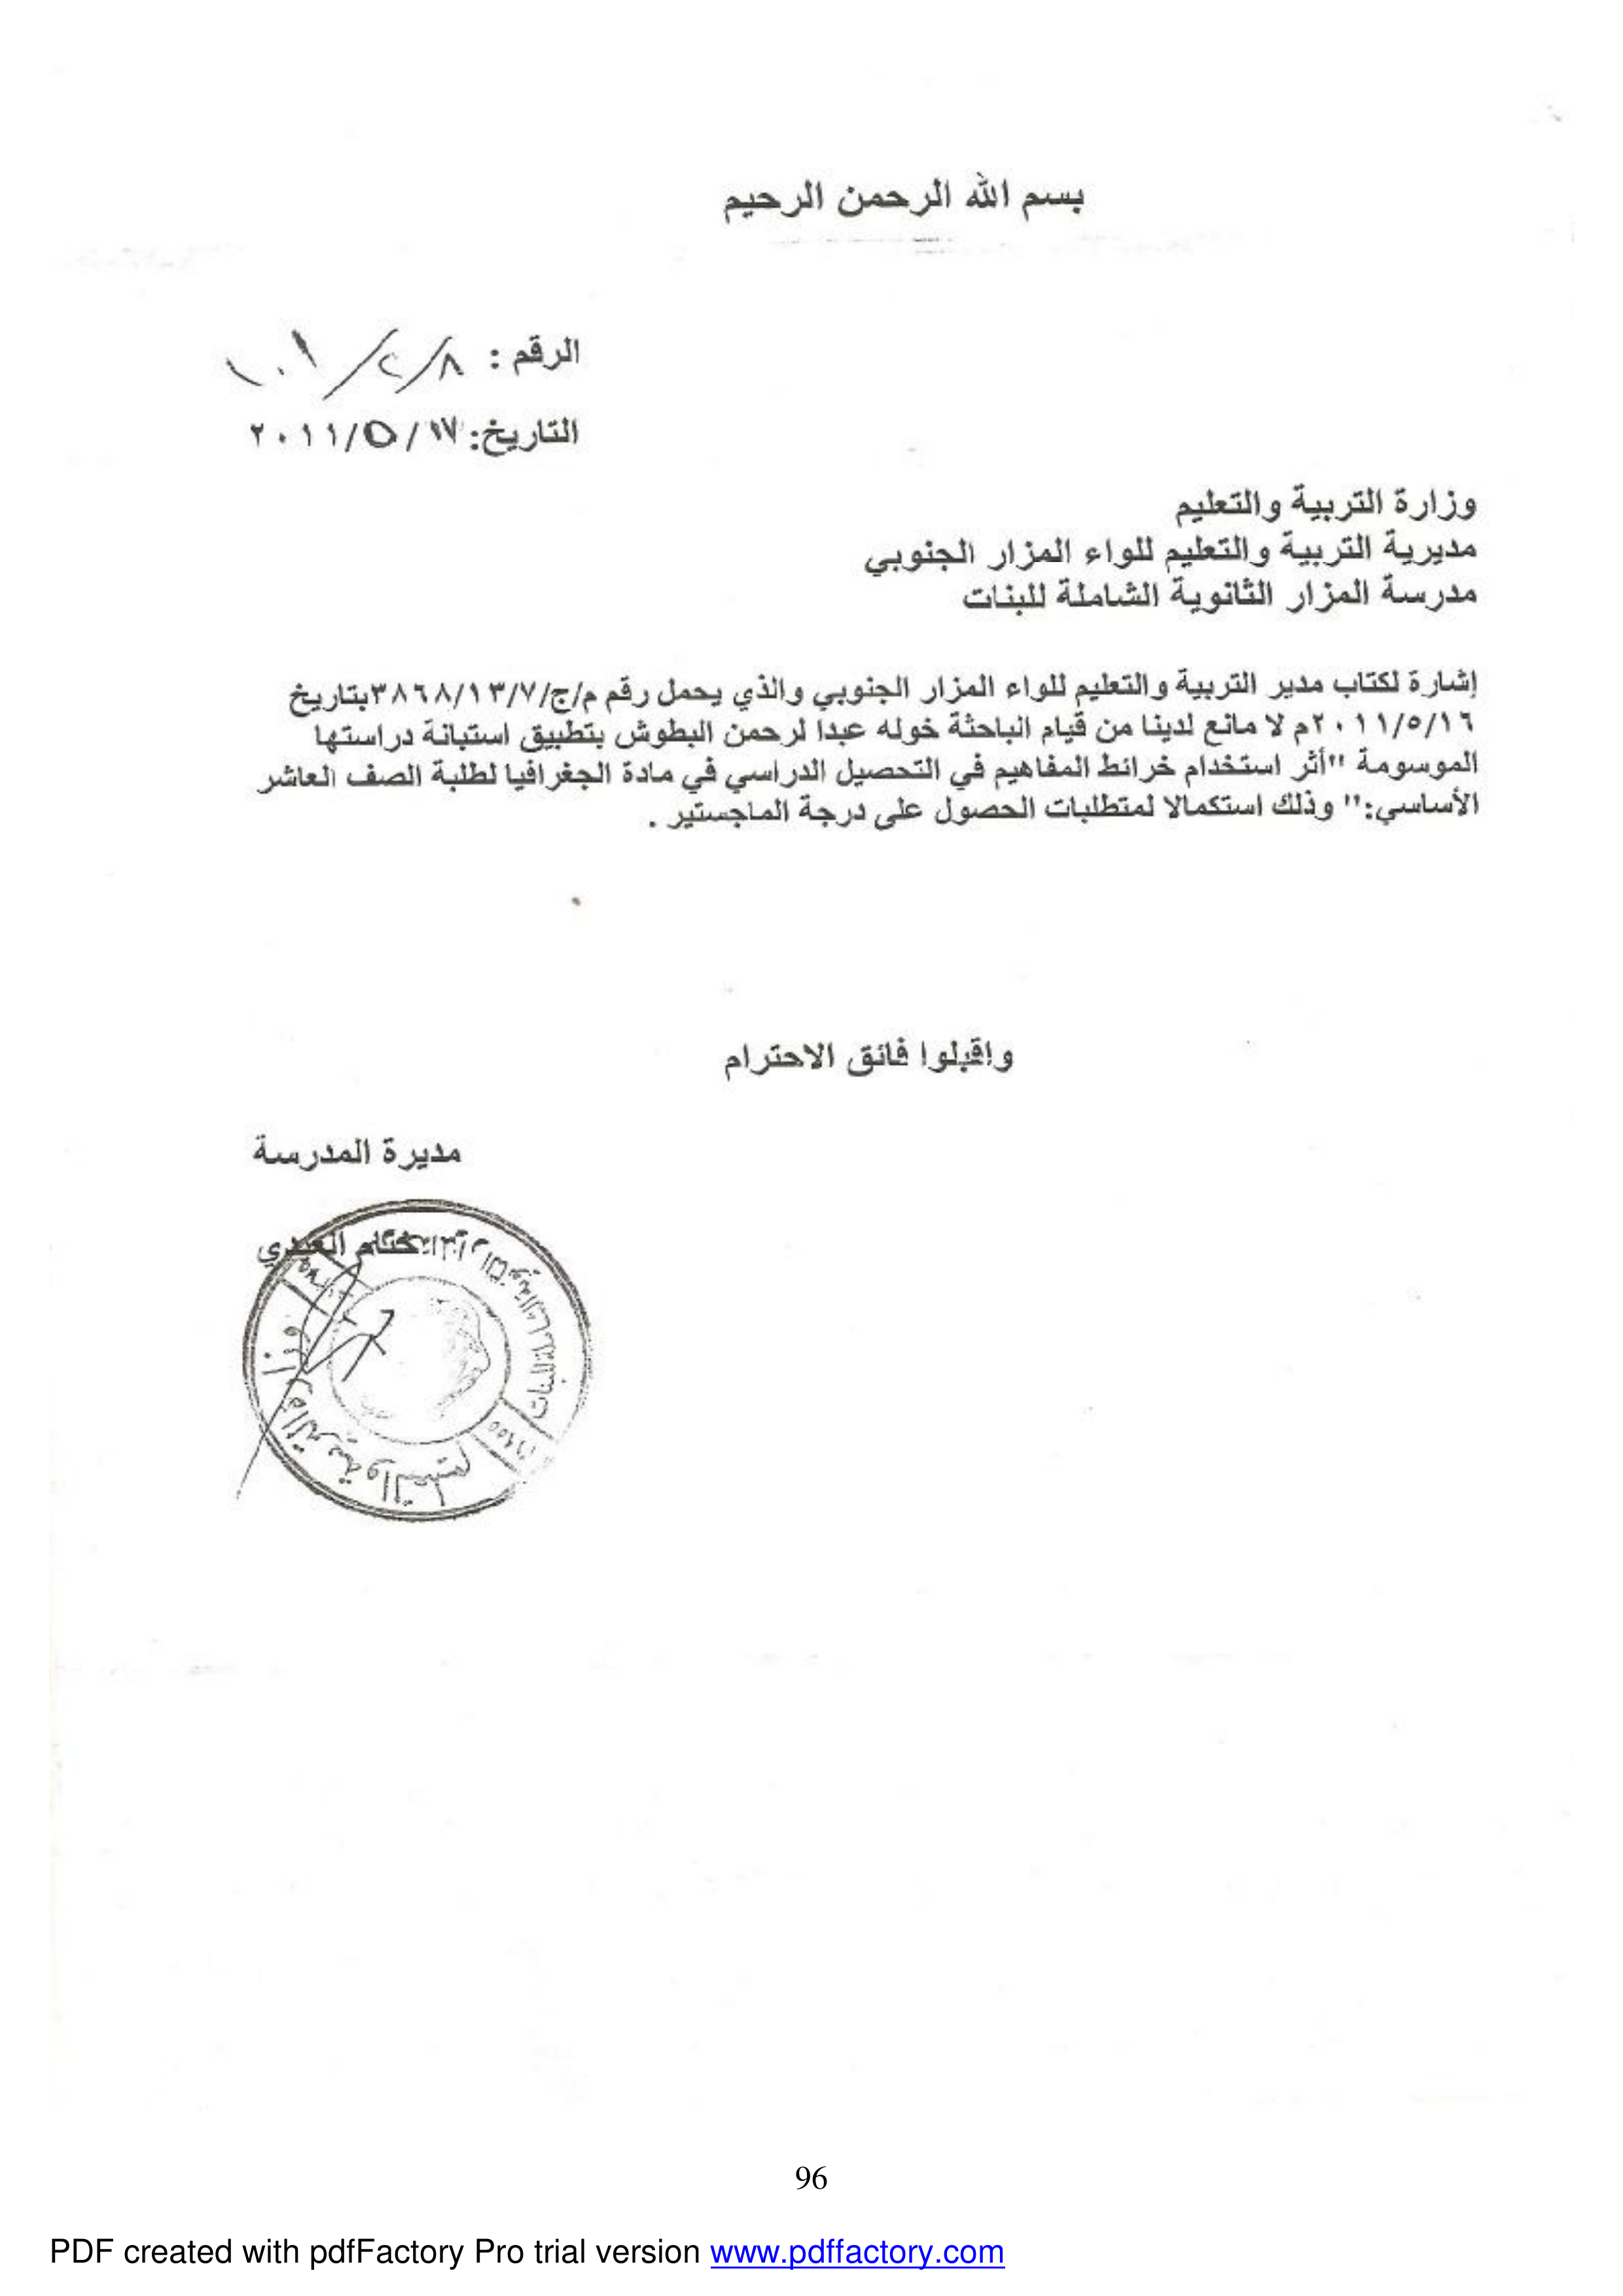 بسم الله الرحمن الرحيم
الرقم : ٨/٢/١٠١
التاريخ: ١٧/٥/٢٠١١
وزارة التربية والتعليم
مديرية التربية والتعليم للواء المزار الجنوبي
مدرسة المزار الثانوية الشاملة للبنات
إشارة لكتاب مدير التربية والتعليم للواء المزار الجنوبي والذي يحمل رقم م/ج/٣٨٦٨/١٣/٧بتاريخ
٢٠١١/٥/١٦م لا مانع لدينا من قيام الباحثة خوله عبدا لرحمن البطوش بتطبيق استبانة دراستها
الموسومة "أثر استخدام خرائط المفاهيم في التحصيل الدراسي في مادة الجغرافيا لطلبة الصف العاشر
الأساسي:" وذلك استكمالا لمتطلبات الحصول على درجة الماجستير .
وإقبلوا فائق الاحترام
مديرة المدرسة
ختام العبدي
وزارة التربية والتعليم
96
PDF created with pdfFactory Pro trial version www.pdffactory.com